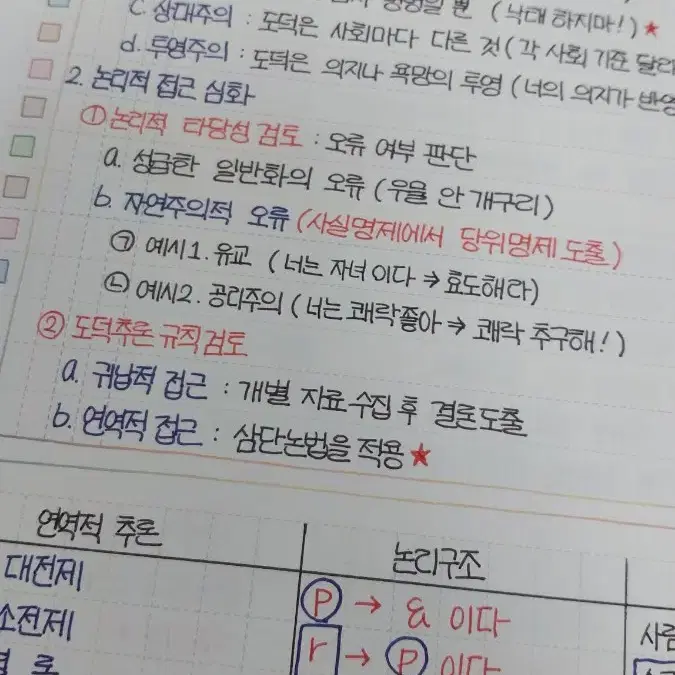 c. 상대주의 : 도덕은 사회마다 다른 것 (각 사회 기준 달라
d. 투영주의 : 도덕은 의지나 욕망의 투영 (너의 의지가 반영
2. 논리적 접근 심화
① 논리적 타당성 검토 : 오류 여부 판단
a. 성급한 일반화의 오류 (우물 안 개구리)
b. 자연주의적 오류 (사실명제에서 당위명제 도출)
㉠ 예시1. 유교 (너는 자녀이다 → 효도해라)
㉡ 예시2. 공리주의 (너는 쾌락좋아 → 쾌락 추구해!)
② 도덕추론 규칙검토
a. 귀납적 접근 : 개별 자료 수집 후 결론도출
b. 연역적 접근 : 삼단논법을 적용 ★
연역적 추론 논리구조
대전제 P → Q 이다 사람
소전제 r → P 이다
결론